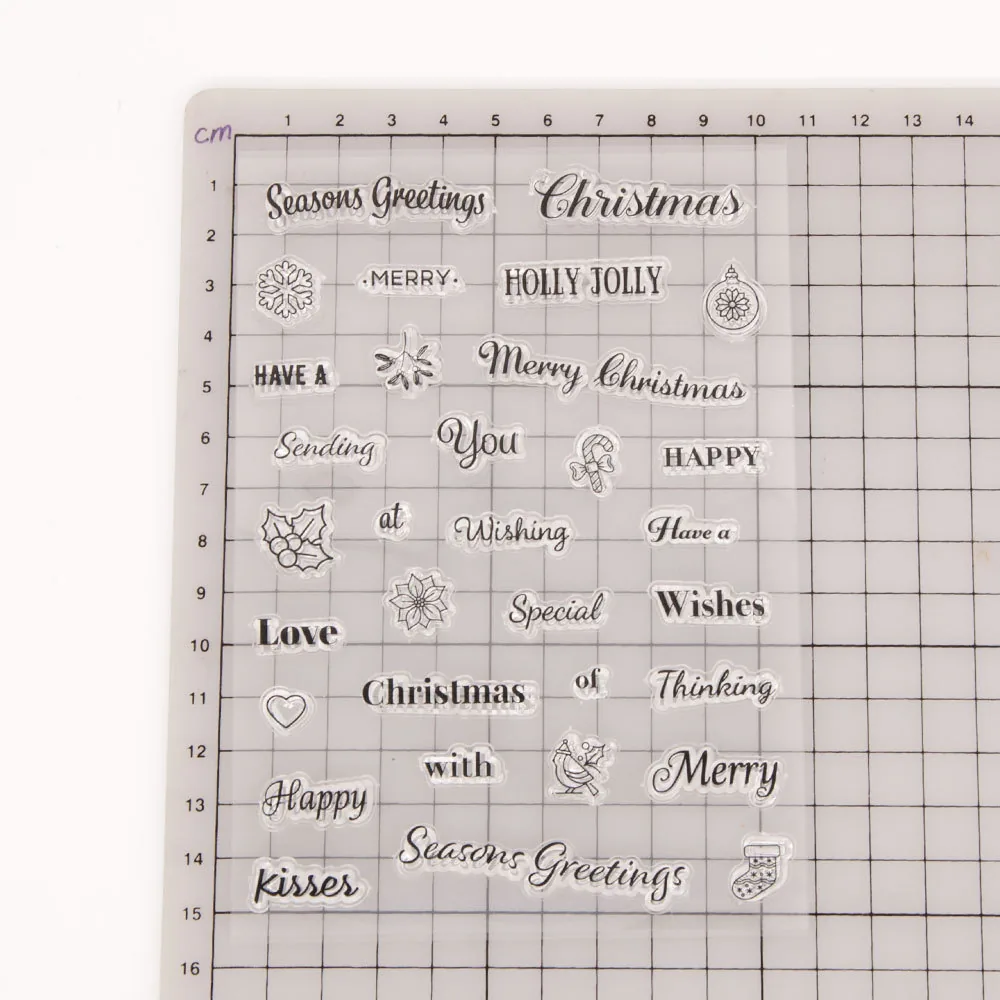 1 2 3 4 5 6 7 8 9 10 11 12 13 14
cm
1
Seasons Greetings Christmas
2
3 ·MERRY· HOLLY JOLLY
4
HAVE A Merry Christmas
5
6 Sending You HAPPY
7
at Wishing Have a
8
9 Special Wishes
Love
10
11 Christmas of Thinking
12 with Merry
13 Happy
14 Seasons Greetings
Kisses
15
16